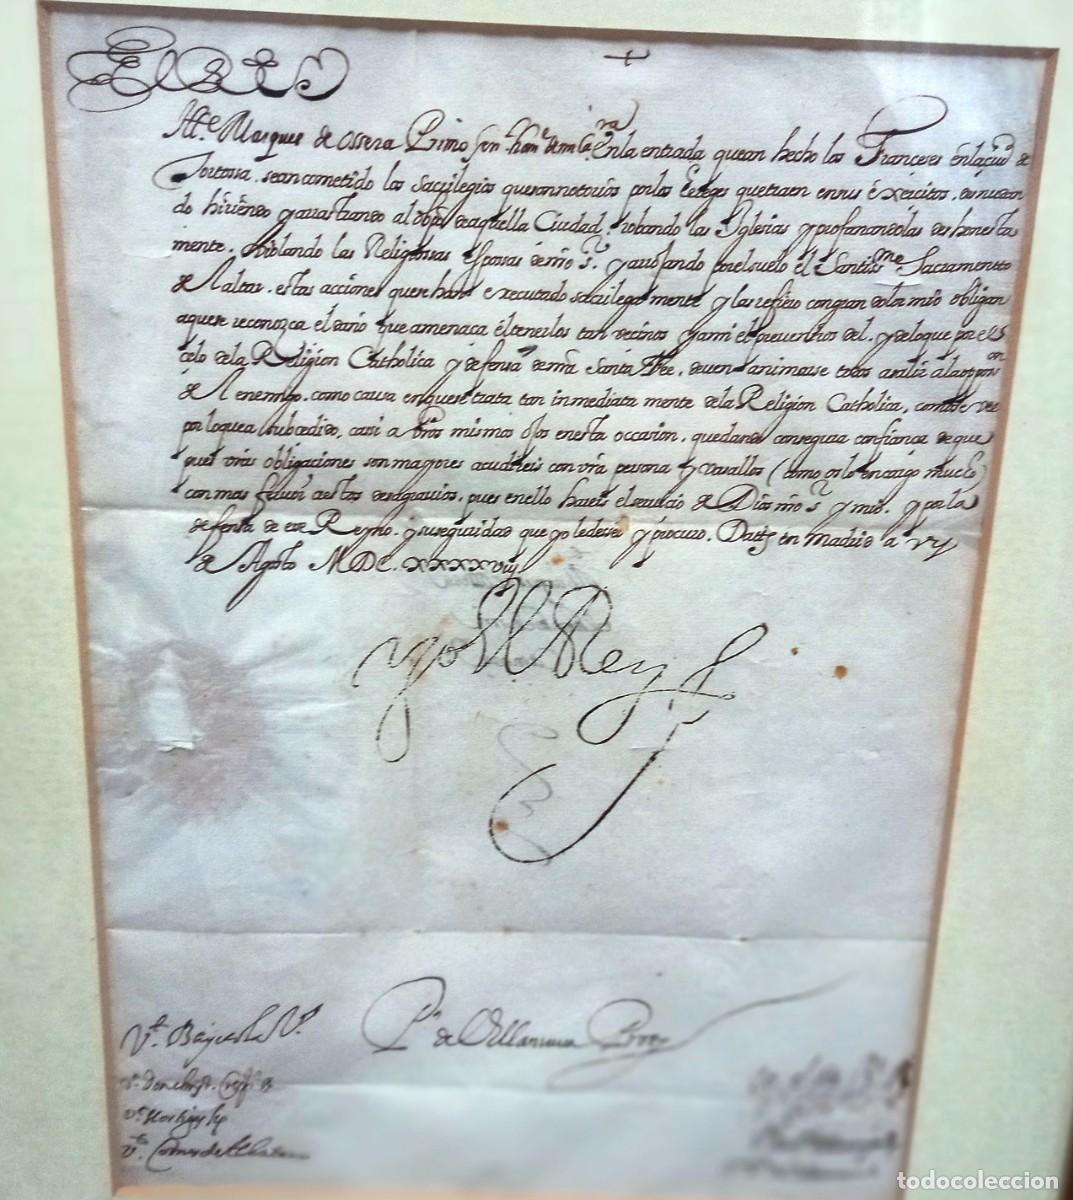 El Rey
Ill.e Marques de Ossera Primo gen.l hom.e de mi ca.ra En la entrada que an hecho los Franceses en la çiud de
Tortosa, se an cometido los sacrilegios que son notorios por los Ereges que traen en sus éxercitos, desnudan
do hiriendo y arrastrando al obpo de aquella Ciudad, robando las Yglesias y profanandolas deshonesta
mente, violando las Religiosas Esposas de nro s.r y arrojando por el suelo el Santiss.mo Sacramento
del altar, estas acciones que se han executado sacrilegamente y las refiero con gran dolor mio obligan
a que se reconozca el daño que amenaça él tenerlos tan vecinos y a mi el preveniros del, y de lo que por el
celo de la Religion Catholica y defensa de nra Santa Fee, deven animarse todos a salir a la oppon
del enemigo, como causa en que se trata tan inmediatamente de la Religion Catholica, como se vee
por lo que a subcedido, casi a vros mismos ojos en esta occasion, quedando con segura confiança de que
pues vras obligaciones son mayores acudireis con vra persona y vasallos (como os lo encargo mucho)
con mas fervor a estos desagravios, pues en ello hareis el servicio de Dios nro s.r y mio, y por la
defensa de ese Reyno, y seguridad que yo le deseo y procuro. Datt en Madrid a VI
de Agosto MDC.XXXXVIII
yo El Rey
P.º de Villanueva
V.t
V.t Don
V.t
V.t Comes de
todocoleccion